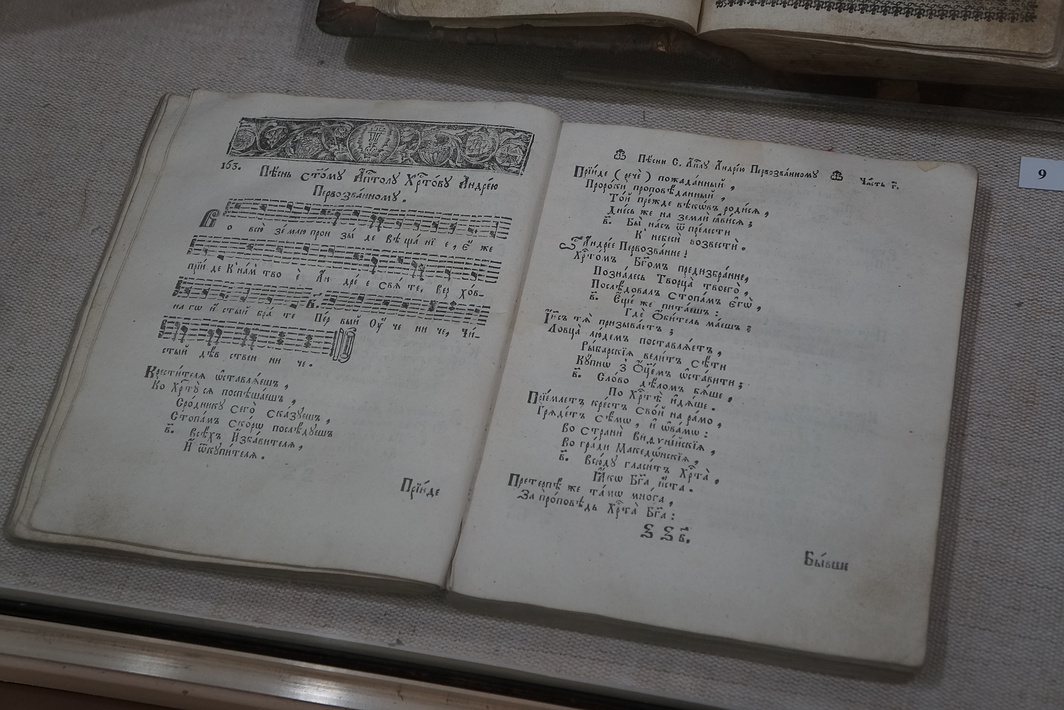 163. Пѣснь ст҃ому Ап҃толу Хр҃тову Андрею
Первозва́нному.
во всю зе́млю про и зы́ де вѣ ща́ нї е, є҆́ же
прїи́ де к' на́м тво є҆̀ Ан дре́ е свѧ́ те, вер хо́в-
на гѡ и҆ ста́ѧ бра́ те Пе́р вый Оу҆ че ни че, Чи-
стый дѣ́в ствен ни че.
Крсти́телѧ ѡ҆ставлѧ́ешъ,
Ко Хр҃ту́ сѧ поспѣша́ешъ,
Сро́днику сего̀ сказу́ешъ,
Стопа́мъ ско́рѡ послѣ́дуешъ
в҃. Всѣ́хъ И҆зба́вителѧ,
И҆ ѿкупи́телѧ.
Прїи́де
Пѣсни С. Ап҃лу Андре́ю Первозва́нному Ча́сть г҃.
Прїи́де (речѐ) пожада́нный,
Проро́ки проповѣ́данный,
То́й пре́жде вѣкѡ́въ роди́сѧ,
Дне́сь же на земли́ ꙗ҆ви́сѧ;
в҃. Бы̀ на́съ ѿ пре́лести
К' небесѝ возвестѝ.
Андре́е Первозва́нне!
Хр҃то́мъ Бг҃омъ предизбра́нне,
Позна́лесь Творца̀ твоего̀,
Послѣ́довалъ стопа́мъ є҆гѡ̀,
в҃. Є҆ще́ же пита́ешъ:
Гдѣ̀ Ѻ҆би́тель ма́ешъ;
І҆и҃съ тѧ̀ призыва́етъ;
Ловца̀ лю́демъ поставлѧ́етъ,
Рыба́рскїѧ вели́тъ сѣ́ти
Ку́пнѡ з' Ѻ҆ц҃е́мъ ѡ҆ста́вити;
в҃. Сло́во дѣ́ломъ бѧ́ше,
По Хр҃тѣ̀ и҆дѧ́ше.
Прїе́млетъ кре́стъ сво́й на ра́мо,
Грѧде́тъ сѣ́мѡ, и҆ ѻ҆ва́мѡ:
Во гра́ди Македо́нскїѧ,
в҃. Всю́ду гласи́тъ Хр҃та̀,
Ꙗ҆́кѡ Бг҃а, и҆́ста.
Претерпѣ́ же та́мѡ мно́га,
За про́повѣдь Хр҃та̀ Бг҃а:
Бы́вши
9